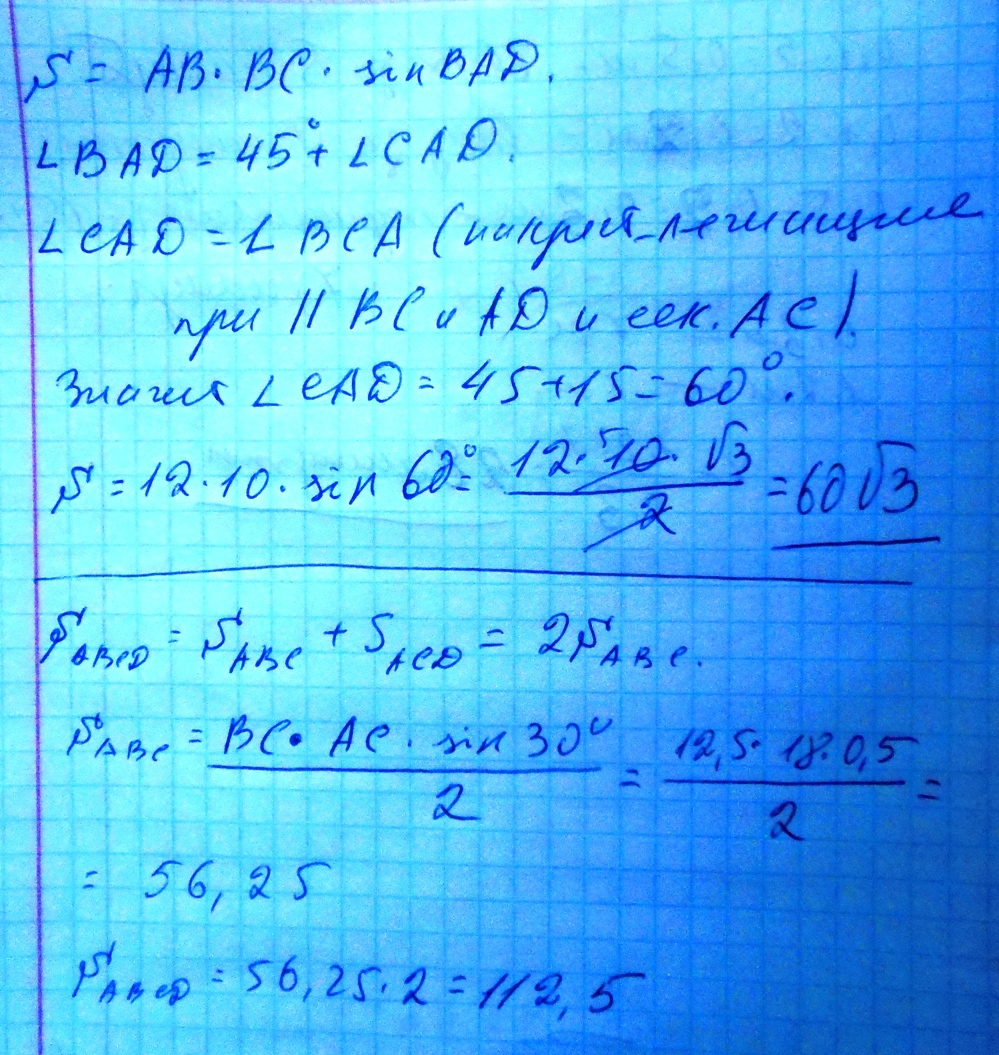 S = AB · BC · sin BAD.
∠BAD = 45° + ∠CAD.
∠CAD = ∠BCA (накрест-лежащие
при || BC и AD и сек. AC).
Значит ∠CAD = 45 + 15 = 60°.
S = 12 · 10 · sin 60° = 12 · 10 · √3 / 2 = 60√3
5
S ABCD = S ABC + S ACD = 2S ABC.
S ABC = BC · AC · sin 30° / 2 = 12,5 · 18 · 0,5 / 2 =
= 56,25
S ABCD = 56,25 · 2 = 112,5